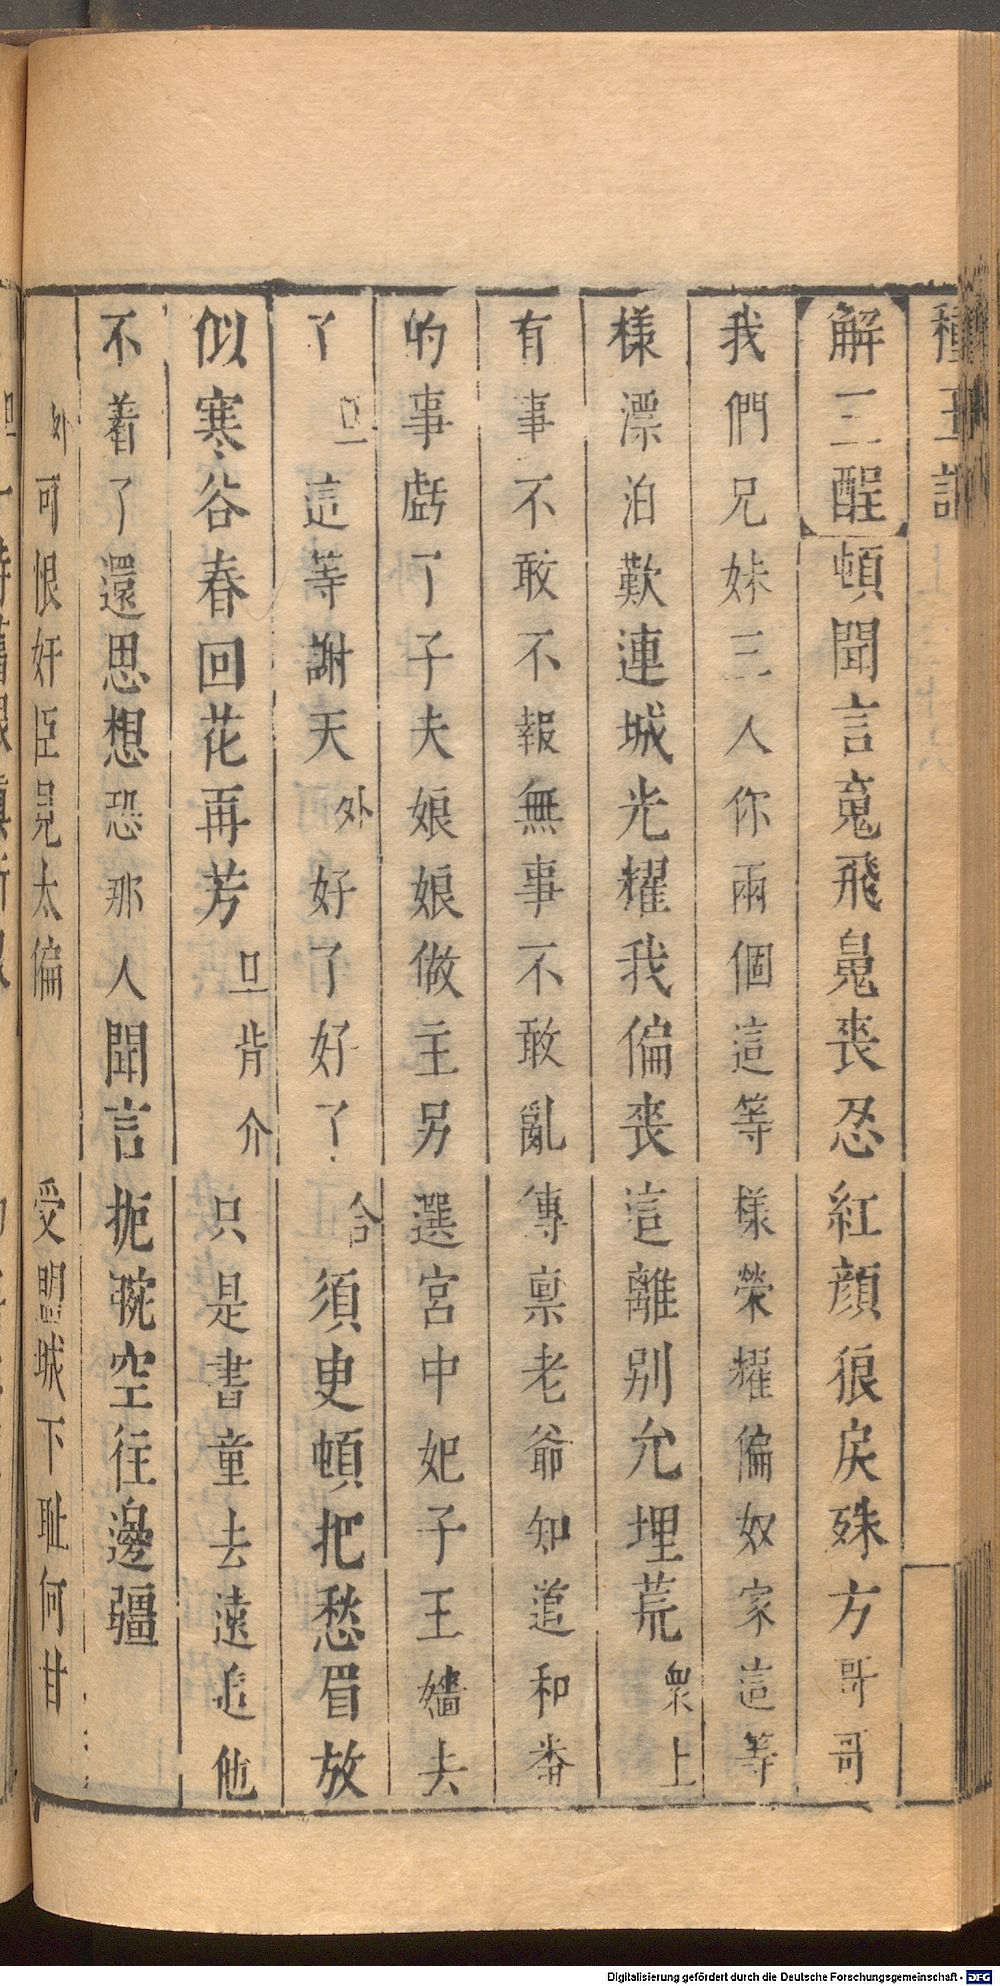 種玉記
解三酲頓聞言䰟飛鬼喪忍紅顔狼戾殊方哥哥
我們兄妹三人你兩個這等樣榮耀偏奴家這等
樣漂泊歎連城光耀我偏喪這離别允埋荒衆上
有事不敢不報無事不敢亂傳禀老爺知道和番
的事虧了子夫娘娘做主另選宮中妃子王嬙去
了旦這等謝天外好了好了合須臾頓把愁眉放
似寒谷春回花再芳旦背介只是書童去遠追他
不着了還思想恐那人聞言扼㼝空往邊疆
外可恨奸臣見太偏受盟城下耻何甘
Digitalisierung gefördert durch die Deutsche Forschungsgemeinschaft - DFG